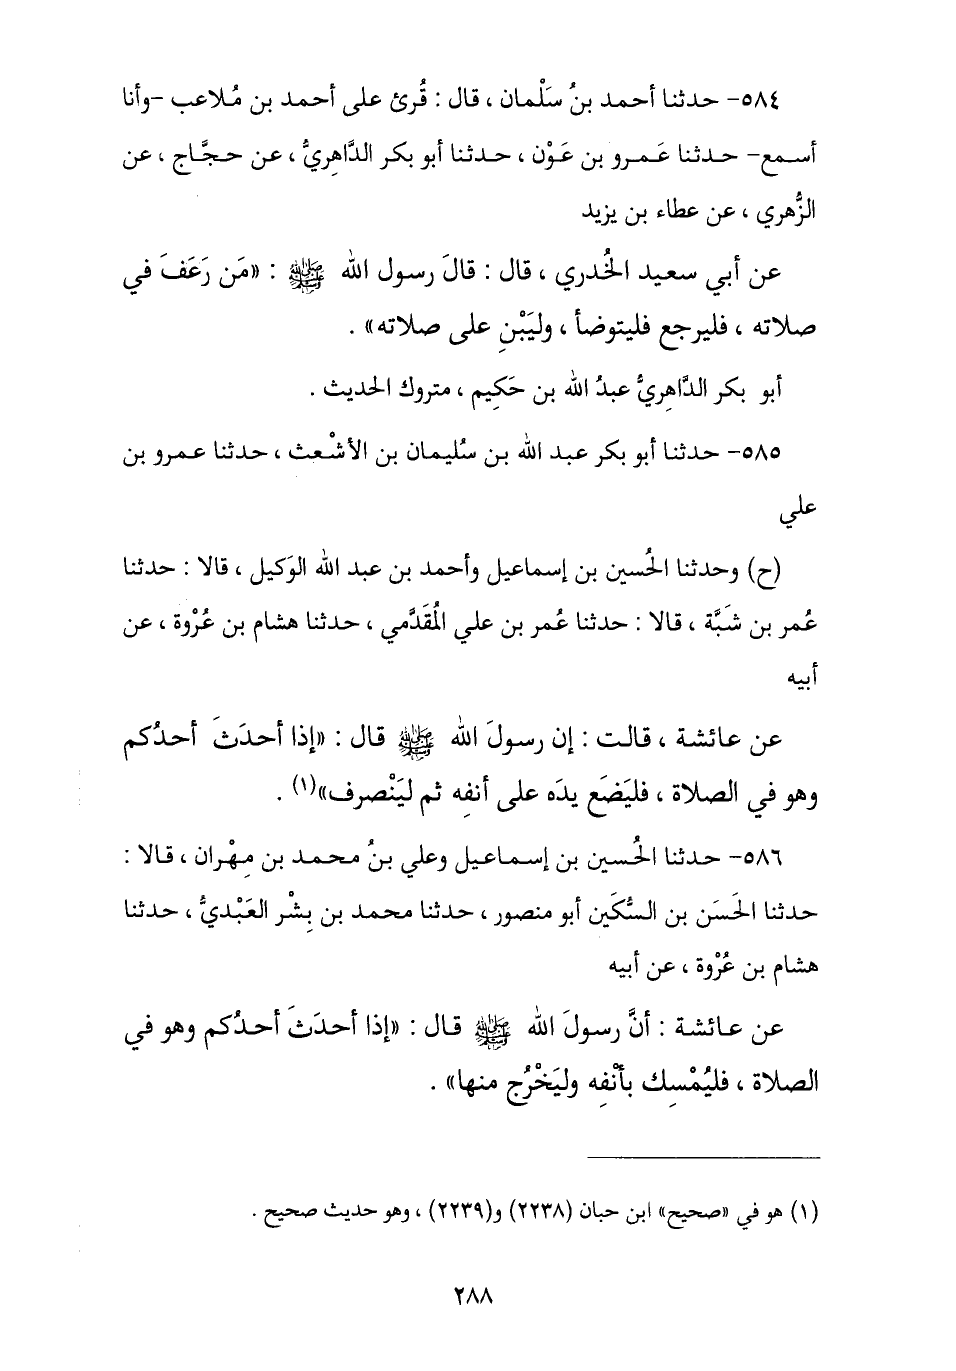 ٥٨٤- حدثنا أحمد بنُ سَلْمان ، قال : قُرئ على أحمد بن مُلاعب -وأنا
أسمع- حدثنا عَمرو بن عَوْن ، حدثنا أبو بكر الدَّاهِريُّ ، عن حجَّاج ، عن
الزُّهري ، عن عطاء بن يزيد
عن أبي سعيد الخُدري ، قال : قالَ رسول الله ﷺ : «مَن رَعَفَ في
صلاته ، فليرجع فليتوضأ ، وليَبْنِ على صلاته» .
أبو بكر الدَّاهِريُّ عبدُ الله بن حَكِيم ، متروك الحديث .
٥٨٥- حدثنا أبو بكر عبد الله بن سُليمان بن الأشْعث ، حدثنا عمرو بن
علي
(ح) وحدثنا الحُسين بن إسماعيل وأحمد بن عبد الله الوَكيل ، قالا : حدثنا
عُمر بن شَبَّة ، قالا : حدثنا عُمر بن علي المُقَدَّمي ، حدثنا هشام بن عُرْوة ، عن
أبيه
عن عائشة ، قالت : إن رسولَ الله ﷺ قال : «إذا أحدَثَ أحدُكم
وهو في الصلاة ، فليَضَع يدَه على أنفِه ثم ليَنْصرف»(١) .
٥٨٦- حدثنا الحُسين بن إسماعيل وعلي بنُ محمد بن مِهْران ، قالا :
حدثنا الحَسَن بن السُّكَين أبو منصور ، حدثنا محمد بن بِشْر العَبْديُّ ، حدثنا
هشام بن عُرْوة ، عن أبيه
عن عائشة : أنَّ رسولَ الله ﷺ قال : «إذا أحدَثَ أحدُكم وهو في
الصلاة ، فليُمْسِك بأنْفِه وليَخْرُج منها» .
(١) هو في «صحيح» ابن حبان (٢٢٣٨) و(٢٢٣٩) ، وهو حديث صحيح .
٢٨٨